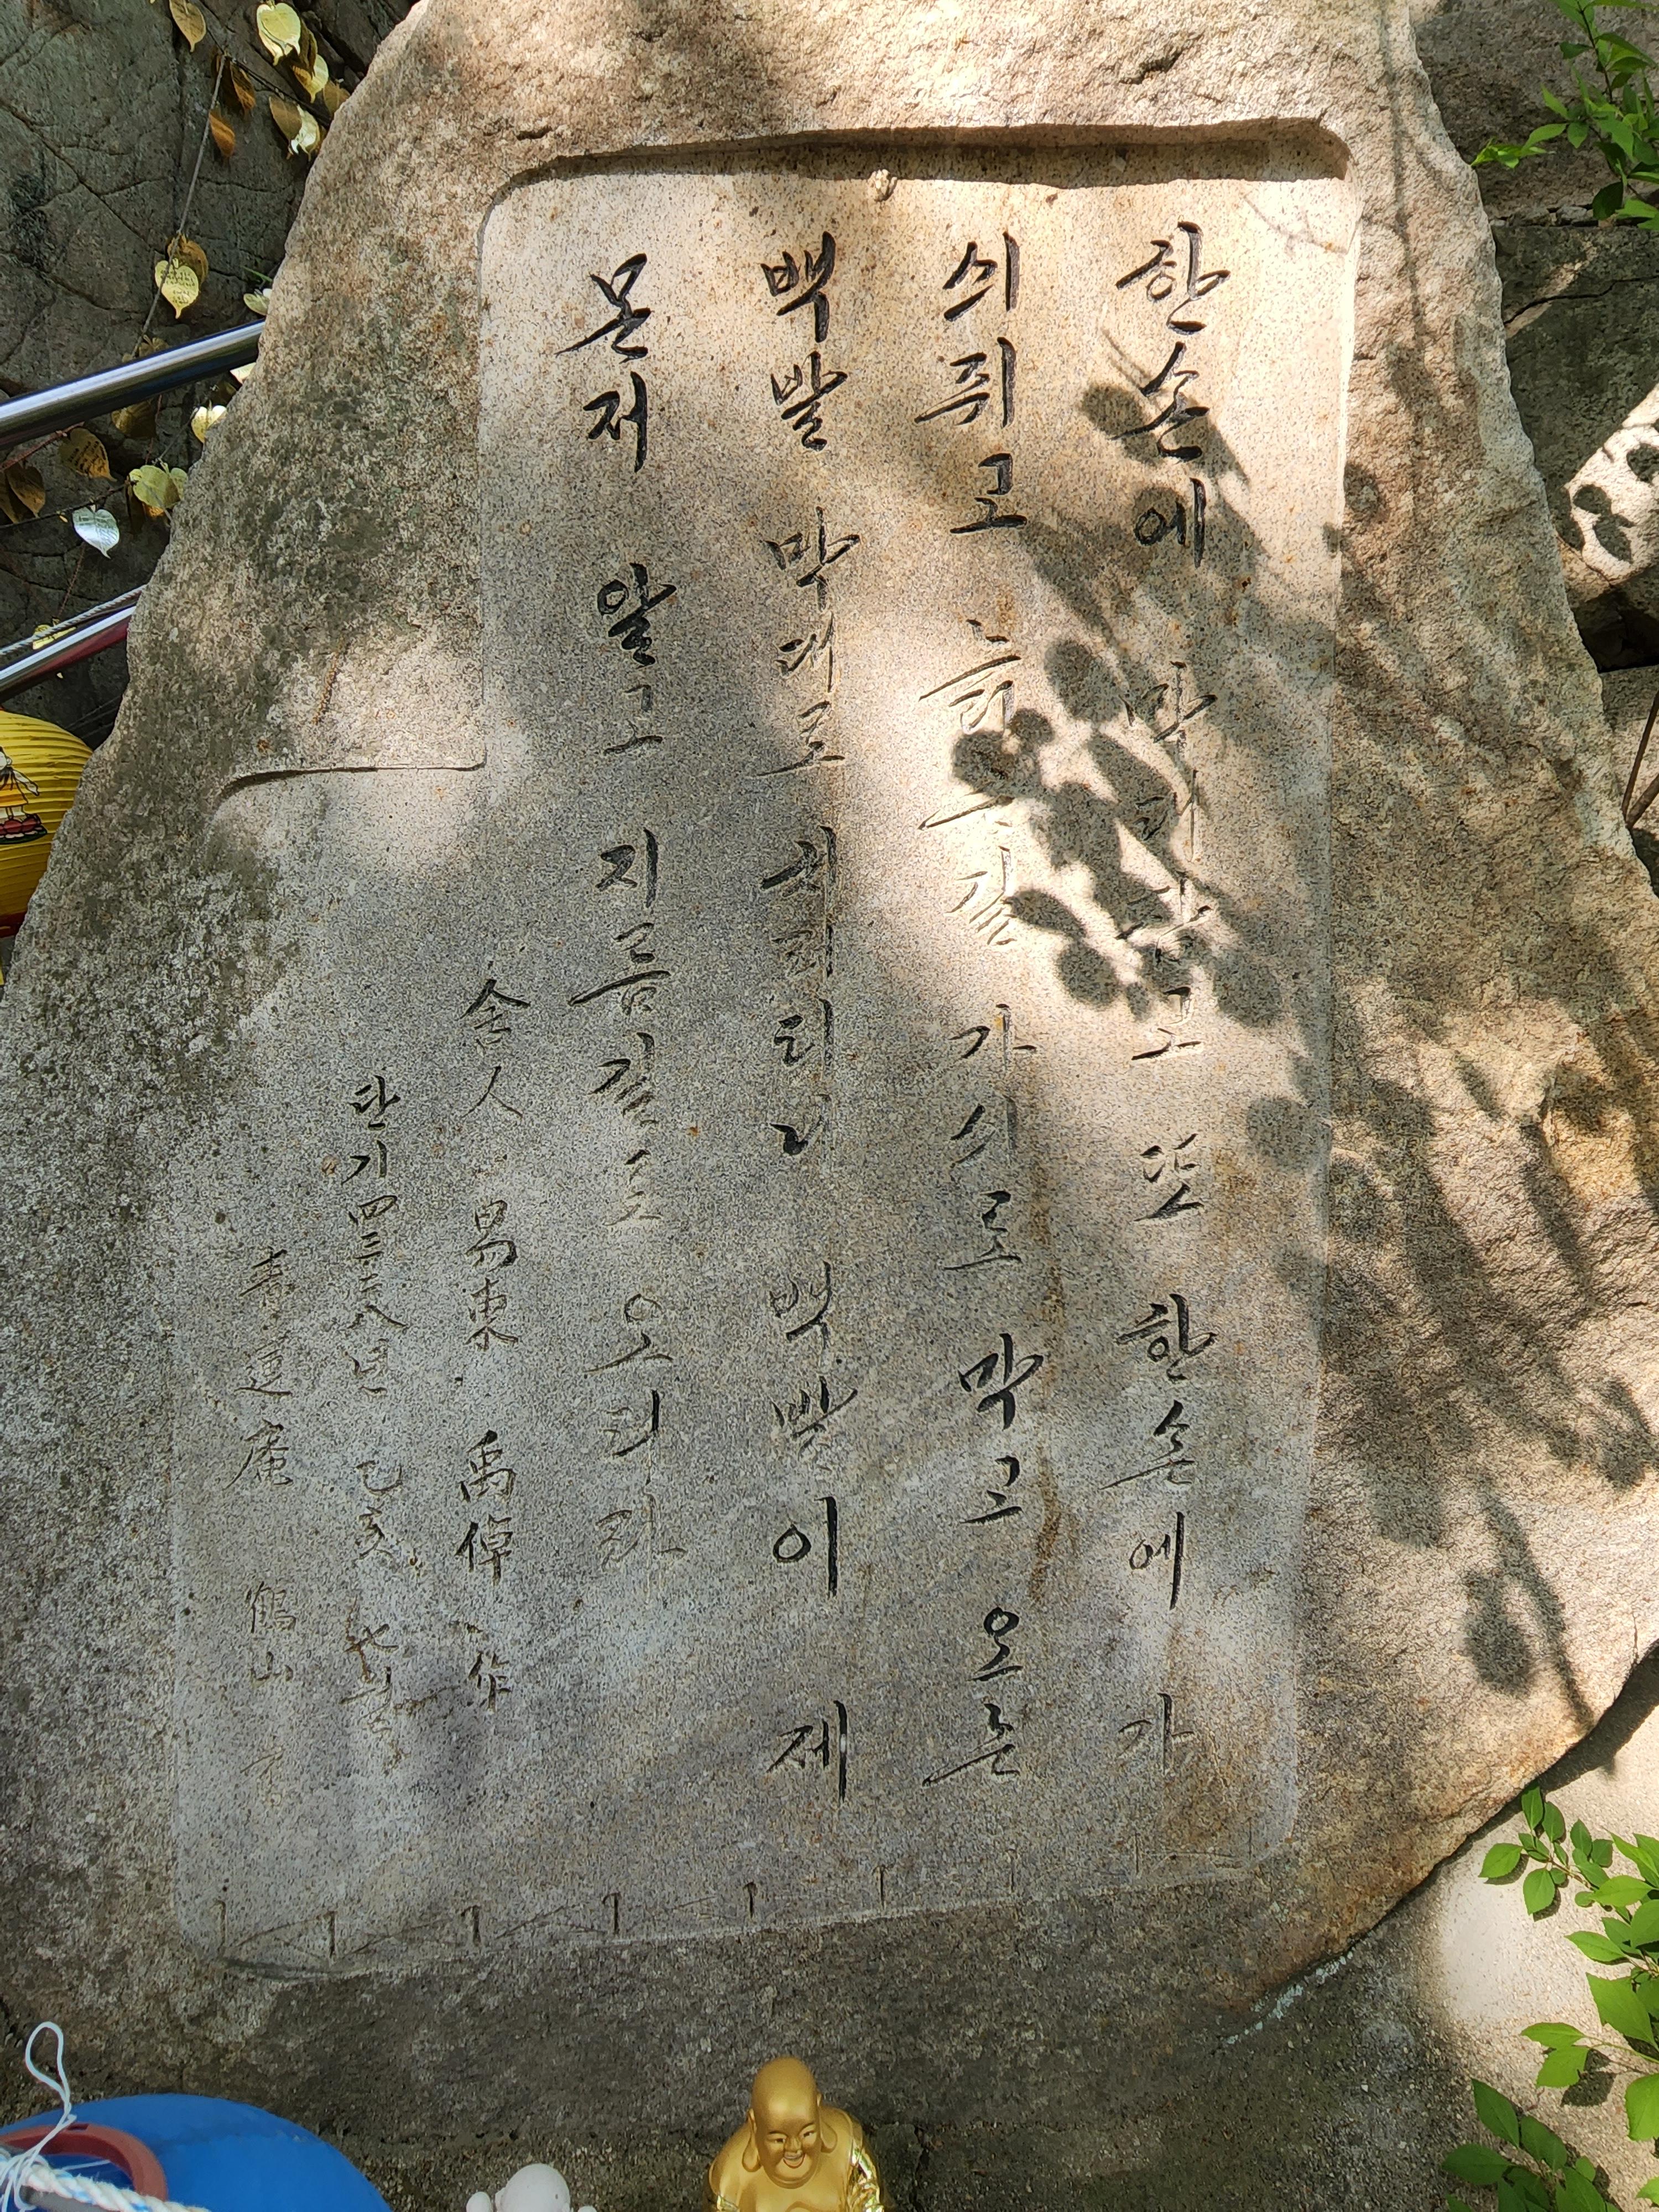 한손에 막대잡고 또 한손에 가
싀쥐고 늙는길 가시로 막고 오는
백발 막대로 치려터니 백발이 제
몬저 알고 지름길로 오더라
舍人 易東 禹倬 作
단기 四三二八년 乙亥
青蓮庵 鶴山 書